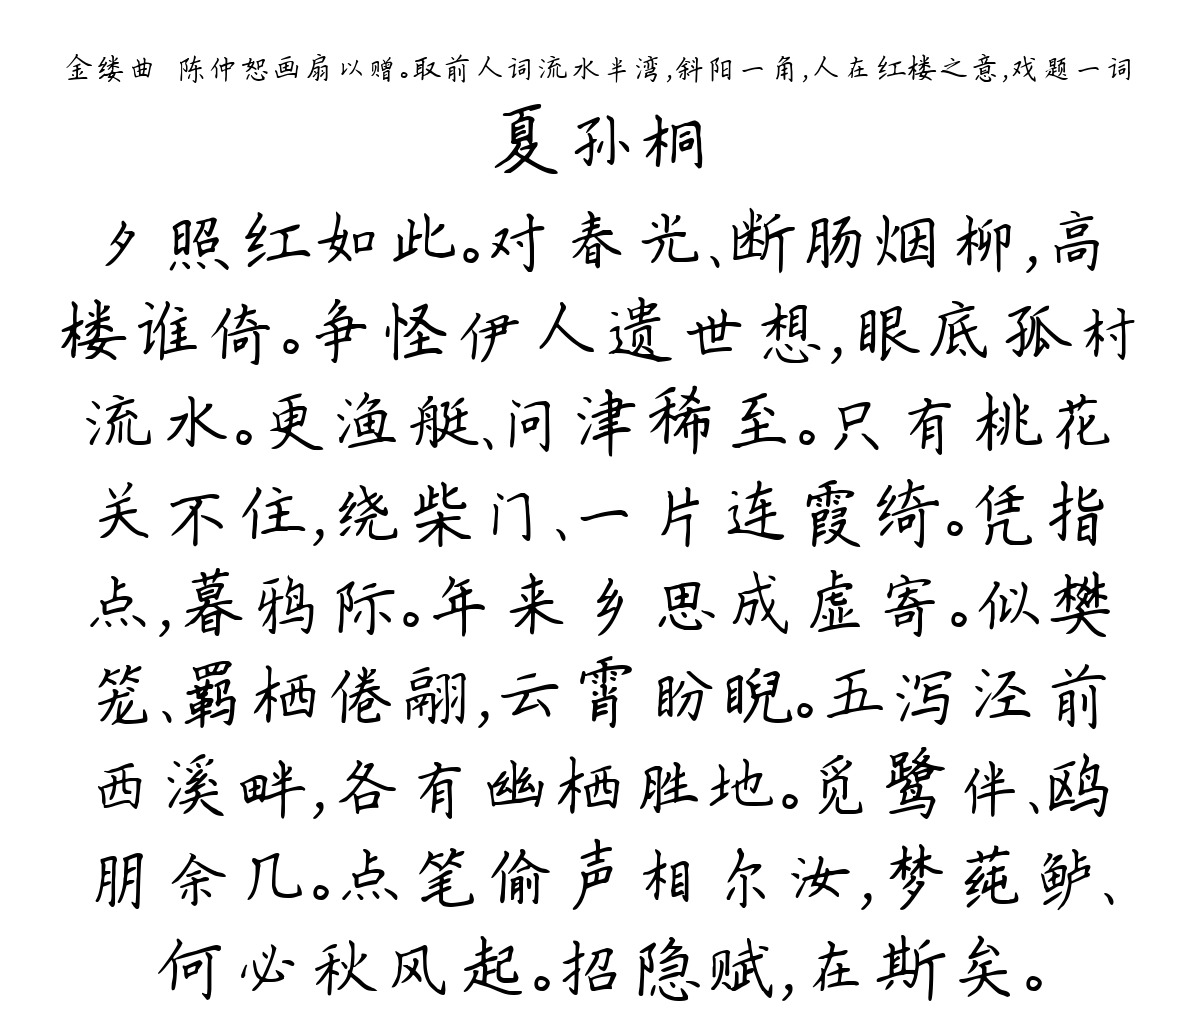 金缕曲 陈仲恕画扇以赠。取前人词流水半湾,斜阳一角,人在红楼之意,戏题一词
夏孙桐
夕照红如此。对春光、断肠烟柳,高
楼谁倚。争怪伊人遗世想,眼底孤村
流水。更渔艇、问津稀至。只有桃花
关不住,绕柴门、一片连霞绮。凭指
点,暮鸦际。年来乡思成虚寄。似樊
笼、羁栖倦翮,云霄盼睨。五泻泾前
西溪畔,各有幽栖胜地。觅鹭伴、鸥
朋余几。点笔偷声相尔汝,梦莼鲈、
何必秋风起。招隐赋,在斯矣。